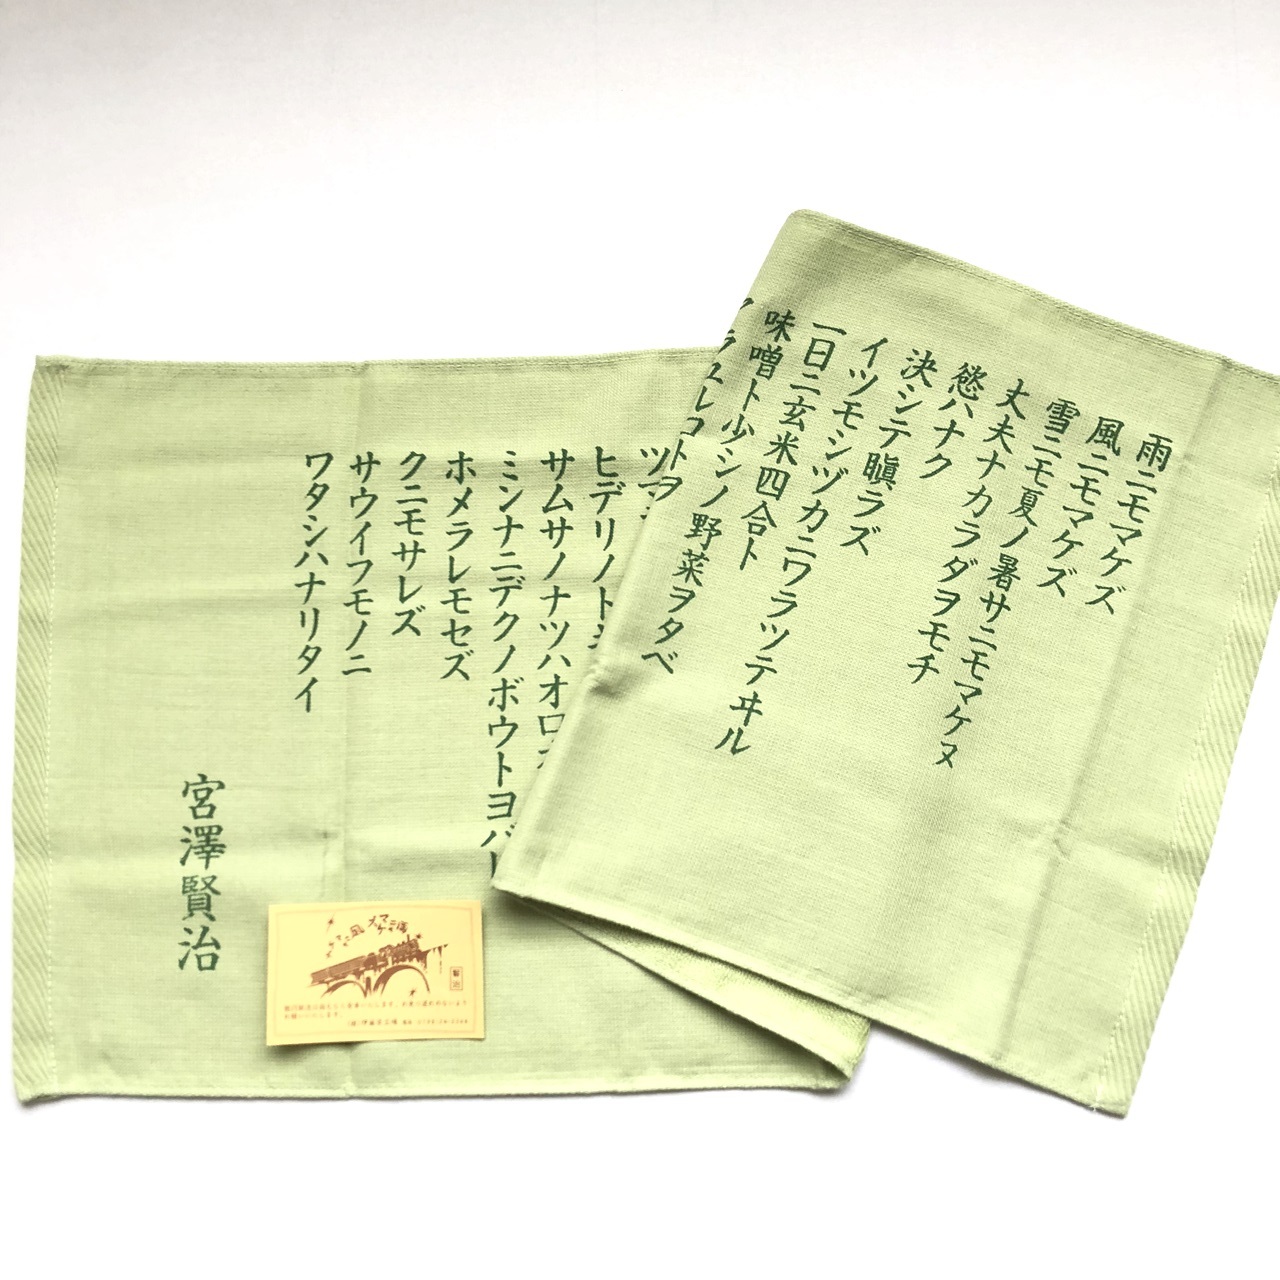 雨ニモマケズ
風ニモマケズ
雪ニモ夏ノ暑サニモマケヌ
丈夫ナカラダヲモチ
慾ハナク
決シテ瞋ラズ
イツモシヅカニワラツテヰル
一日ニ玄米四合ト
味噌ト少シノ野菜ヲタベ
アラユルコトヲ
ヒデリノトキ
サムサノナツハオロ
ミンナニデクノボウトヨバ
ホメラレモセズ
クニモサレズ
サウイフモノニ
ワタシハナリタイ
宮澤賢治